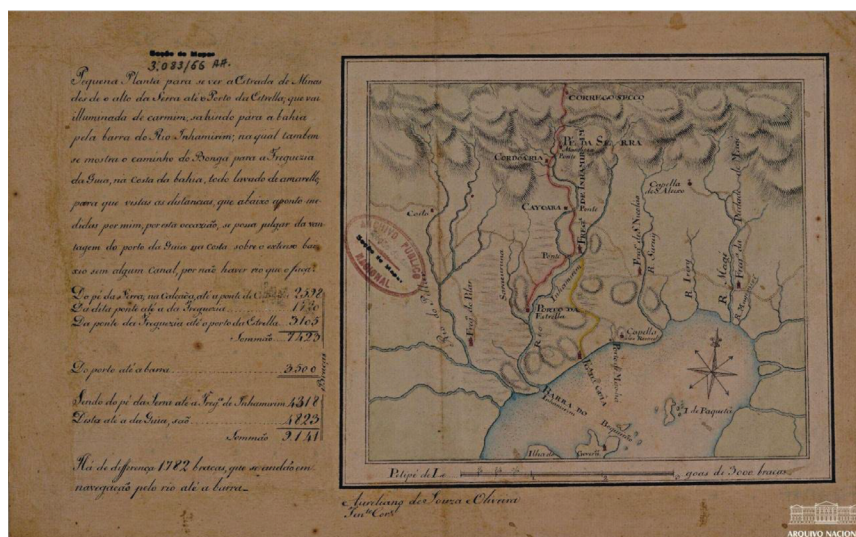 Secção de Mappas
3,083/66 AA.
Pequena Planta para se ver a Estrada de Minas
des de o alto da Serra até o Porto da Estrella, que vai
illuminada de carmim, sahindo para a bahia
pela barra do Rio Inhamirim; na qual tambem
se mostra o caminho do Bonga para a Freguezia
da Guia, na costa da bahia, todo lavado de amarello,
para que vistas as distancias, que abaixo aponto me-
didas por mim, por esta occazião, se possa julgar da van-
tagem do porto da Guia na costa sobre o extenso bai-
xio sem algum canal, por não haver rio que o faça.
Do pé da Serra, na Calçada, até a ponte de 2598
Da dita ponte até a da Freguezia 1720
Da ponte da Freguezia até o porto da Estrella 3105
Sommão 7423
Do porto até a barra 3500
Braças
Sendo do pé da Serra até a Freg.ª de Inhamirim 4318
Desta até a da Guia, são 4823
Sommão 9141
Há de differença 1782 braças, que se andão em
navegação pelo rio até a barra
CORREGO SECCO
PÉ DA SERRA
Ponte
CORDOARIA
CAYOABA
Ponte
FREG.ª DE INHAMIRIM
Capella
de S. Aleixo
Couto
ARCHIVO PUBLICO
Secção de Mappas
NACIONAL
Rio do Pilar
Freg.ª do Pilar
Saracuruna
Rio Inhamirim
PORTO DA
ESTRELLA
Freg.ª de S. Nicolao
R. Suruy
R. Iriry
R. Mage
Freg.ª da Piedade de Mage
Capella
BARRA DO
Inhamirim
I. de Paquetá
Ilha do
Petipé de Legoas de 3000 braças
Aureliano de Souza e Oliveira
Ten.te Cor.el
ARQUIVO NACIONAL